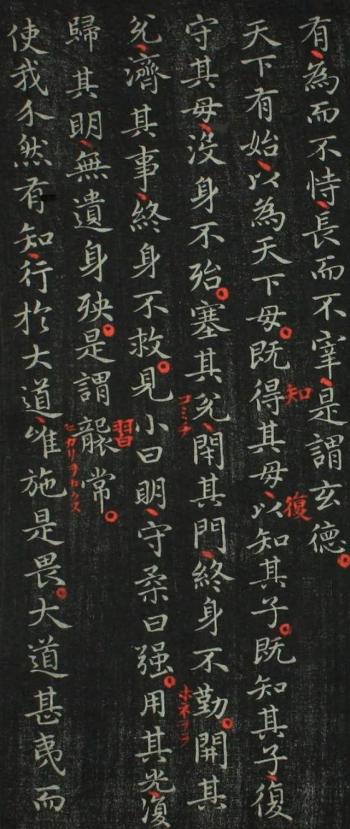 有、為而不恃、長而不宰、是謂玄德。
天下有始、以為天下母。既得其母、以知其子。既知其子、復
知
復
守其母、沒身不殆。塞其兊、閇其門、終身不勤。開其
コミチ
兊、濟其事、終身不救。見小曰明、守柔曰强。用其光、復
歸其明、無遺身殃。是謂襲常。
習
ヒカリヲカクス
使我介然有知、行於大道、唯施是畏。大道甚夷而